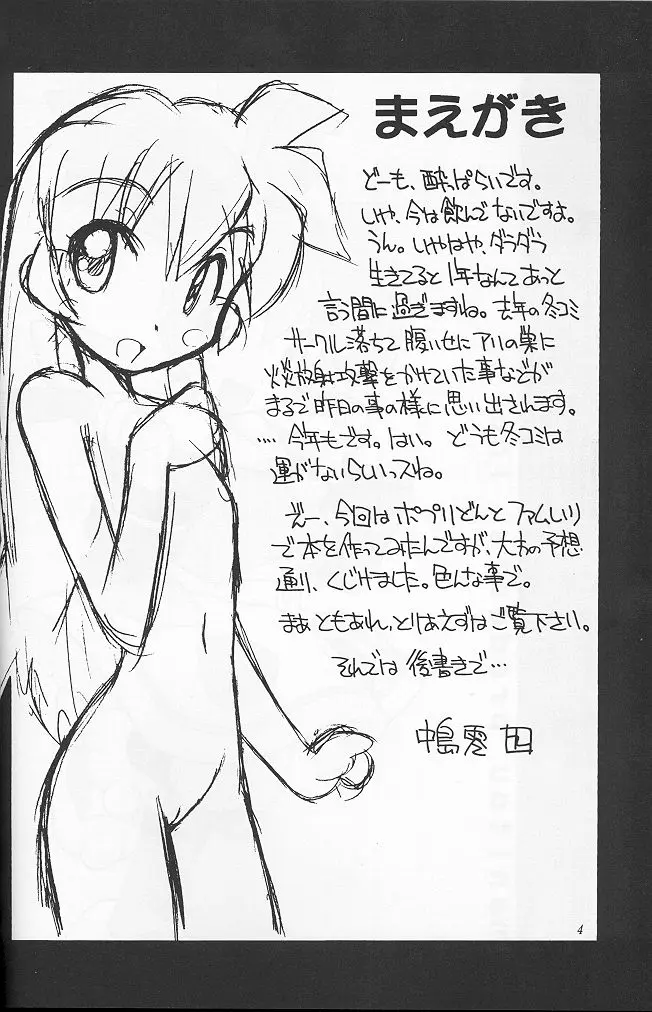 まえがき
どーも、酔っぱらいです。
いや、今は飲んでないですよ。
うん。いやはや、ダラダラ
生きてると1年なんてあっと
言う間に過ぎますね。去年の冬コミ
サークル落ちて腹いせにアリの巣に
火炎放射攻撃をかけていた事などが
まるで昨日の事の様に思い出されます。
‥‥今年もです。はい。どうも冬コミは
運がないらしいっスね。
えー、今回はポプリどんとファムいり
で本を作ってみたんですが、大方の予想
通り、くじけました。色んな事で。
まあともあれ、とりあえずはご覧下さい。
それでは後書きで…
中島零
4